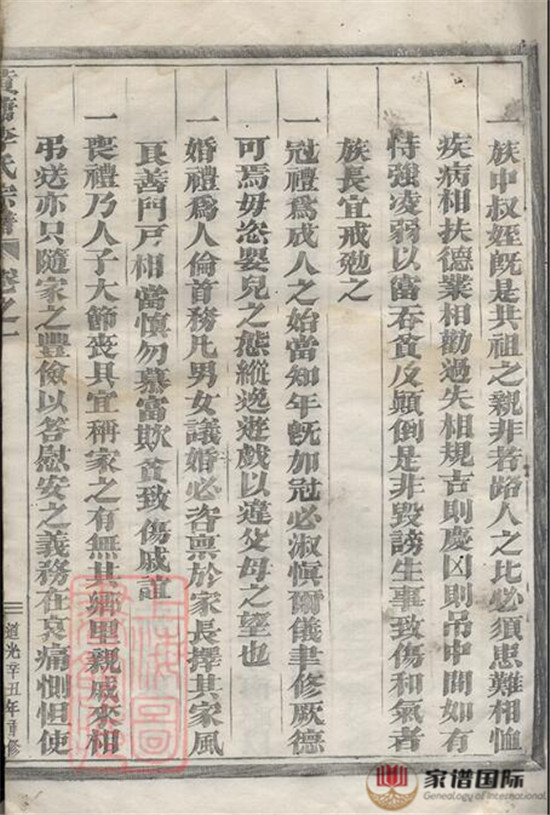 一族中叔姪旣是共祖之親非若路人之比必須患難相恤
疾病相扶德業相勸過失相規吉則慶凶則吊中間如有
恃強凌弱以富吞貧反顛倒是非毀謗生事致傷和氣者
族長宜戒勉之
一冠禮爲成人之始當知年旣加冠必淑愼爾儀聿修厥德
可焉毋恣嬰兒之態縱逸遊戲以違父母之望也
一婚禮爲人倫首務凡男女議婚必咨稟於家長擇其家風
良善門戸相當愼勿慕富欺貧致傷戚誼
一喪禮乃人子大節喪具宜稱家之有無其鄉里親戚來相
弔送亦只隨家之豐儉以答慰安之義務在哀痛惻怛使
黃 李氏宗譜 卷之一
道光辛丑年重修
上海圖
家谱国际
Genealogy of International